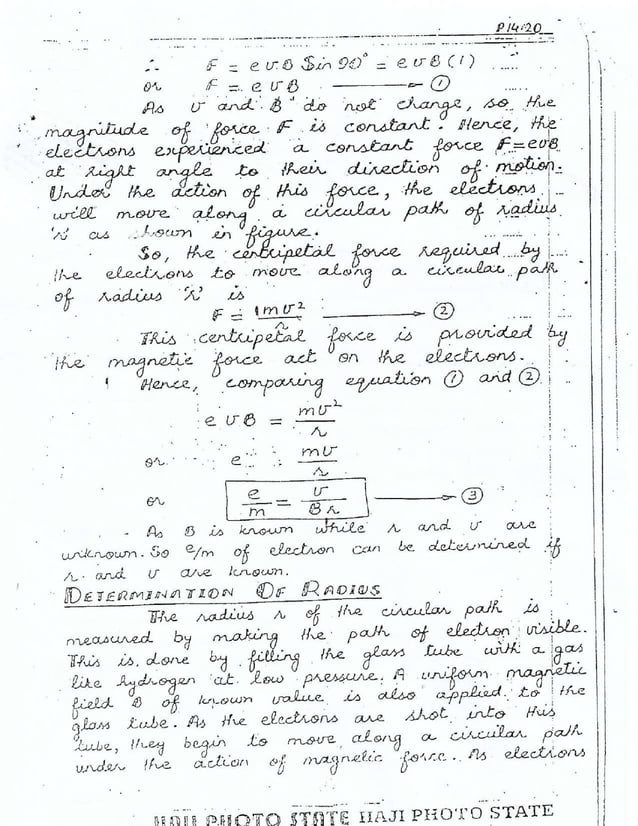 P14-20
∴ F = evB Sin 90° = evB(1)
or F = evB ———→ ①
As v and B do not change, so the
magnitude of force F is constant. Hence, the
electrons experienced a constant force F=evB
at right angle to their direction of motion.
Under the action of this force, the electrons
will move along a circular path of radius
'r' as shown in figure.
So, the centripetal force required by
the electrons to move along a circular path
of radius 'r' is
F = mv²/r ———→ ②
This centripetal force is provided by
the magnetic force act on the electrons.
Hence, comparing equation ① and ②
evB = mv²/r
or e = mv/r
or e/m = v/Br ———→ ③
As B is known while r and v are
unknown. So e/m of electron can be determined if
r and v are known.
DETERMINATION OF RADIUS
The radius r of the circular path is
measured by making the path of electron visible.
This is done by filling the glass tube with a gas
like hydrogen at low pressure. A uniform magnetic
field B of known value is also applied to the
glass tube. As the electrons are shot into this
tube, they begin to move along a circular path
under the action of magnetic force. As electrons
HAJI PHOTO STATE HAJI PHOTO STATE